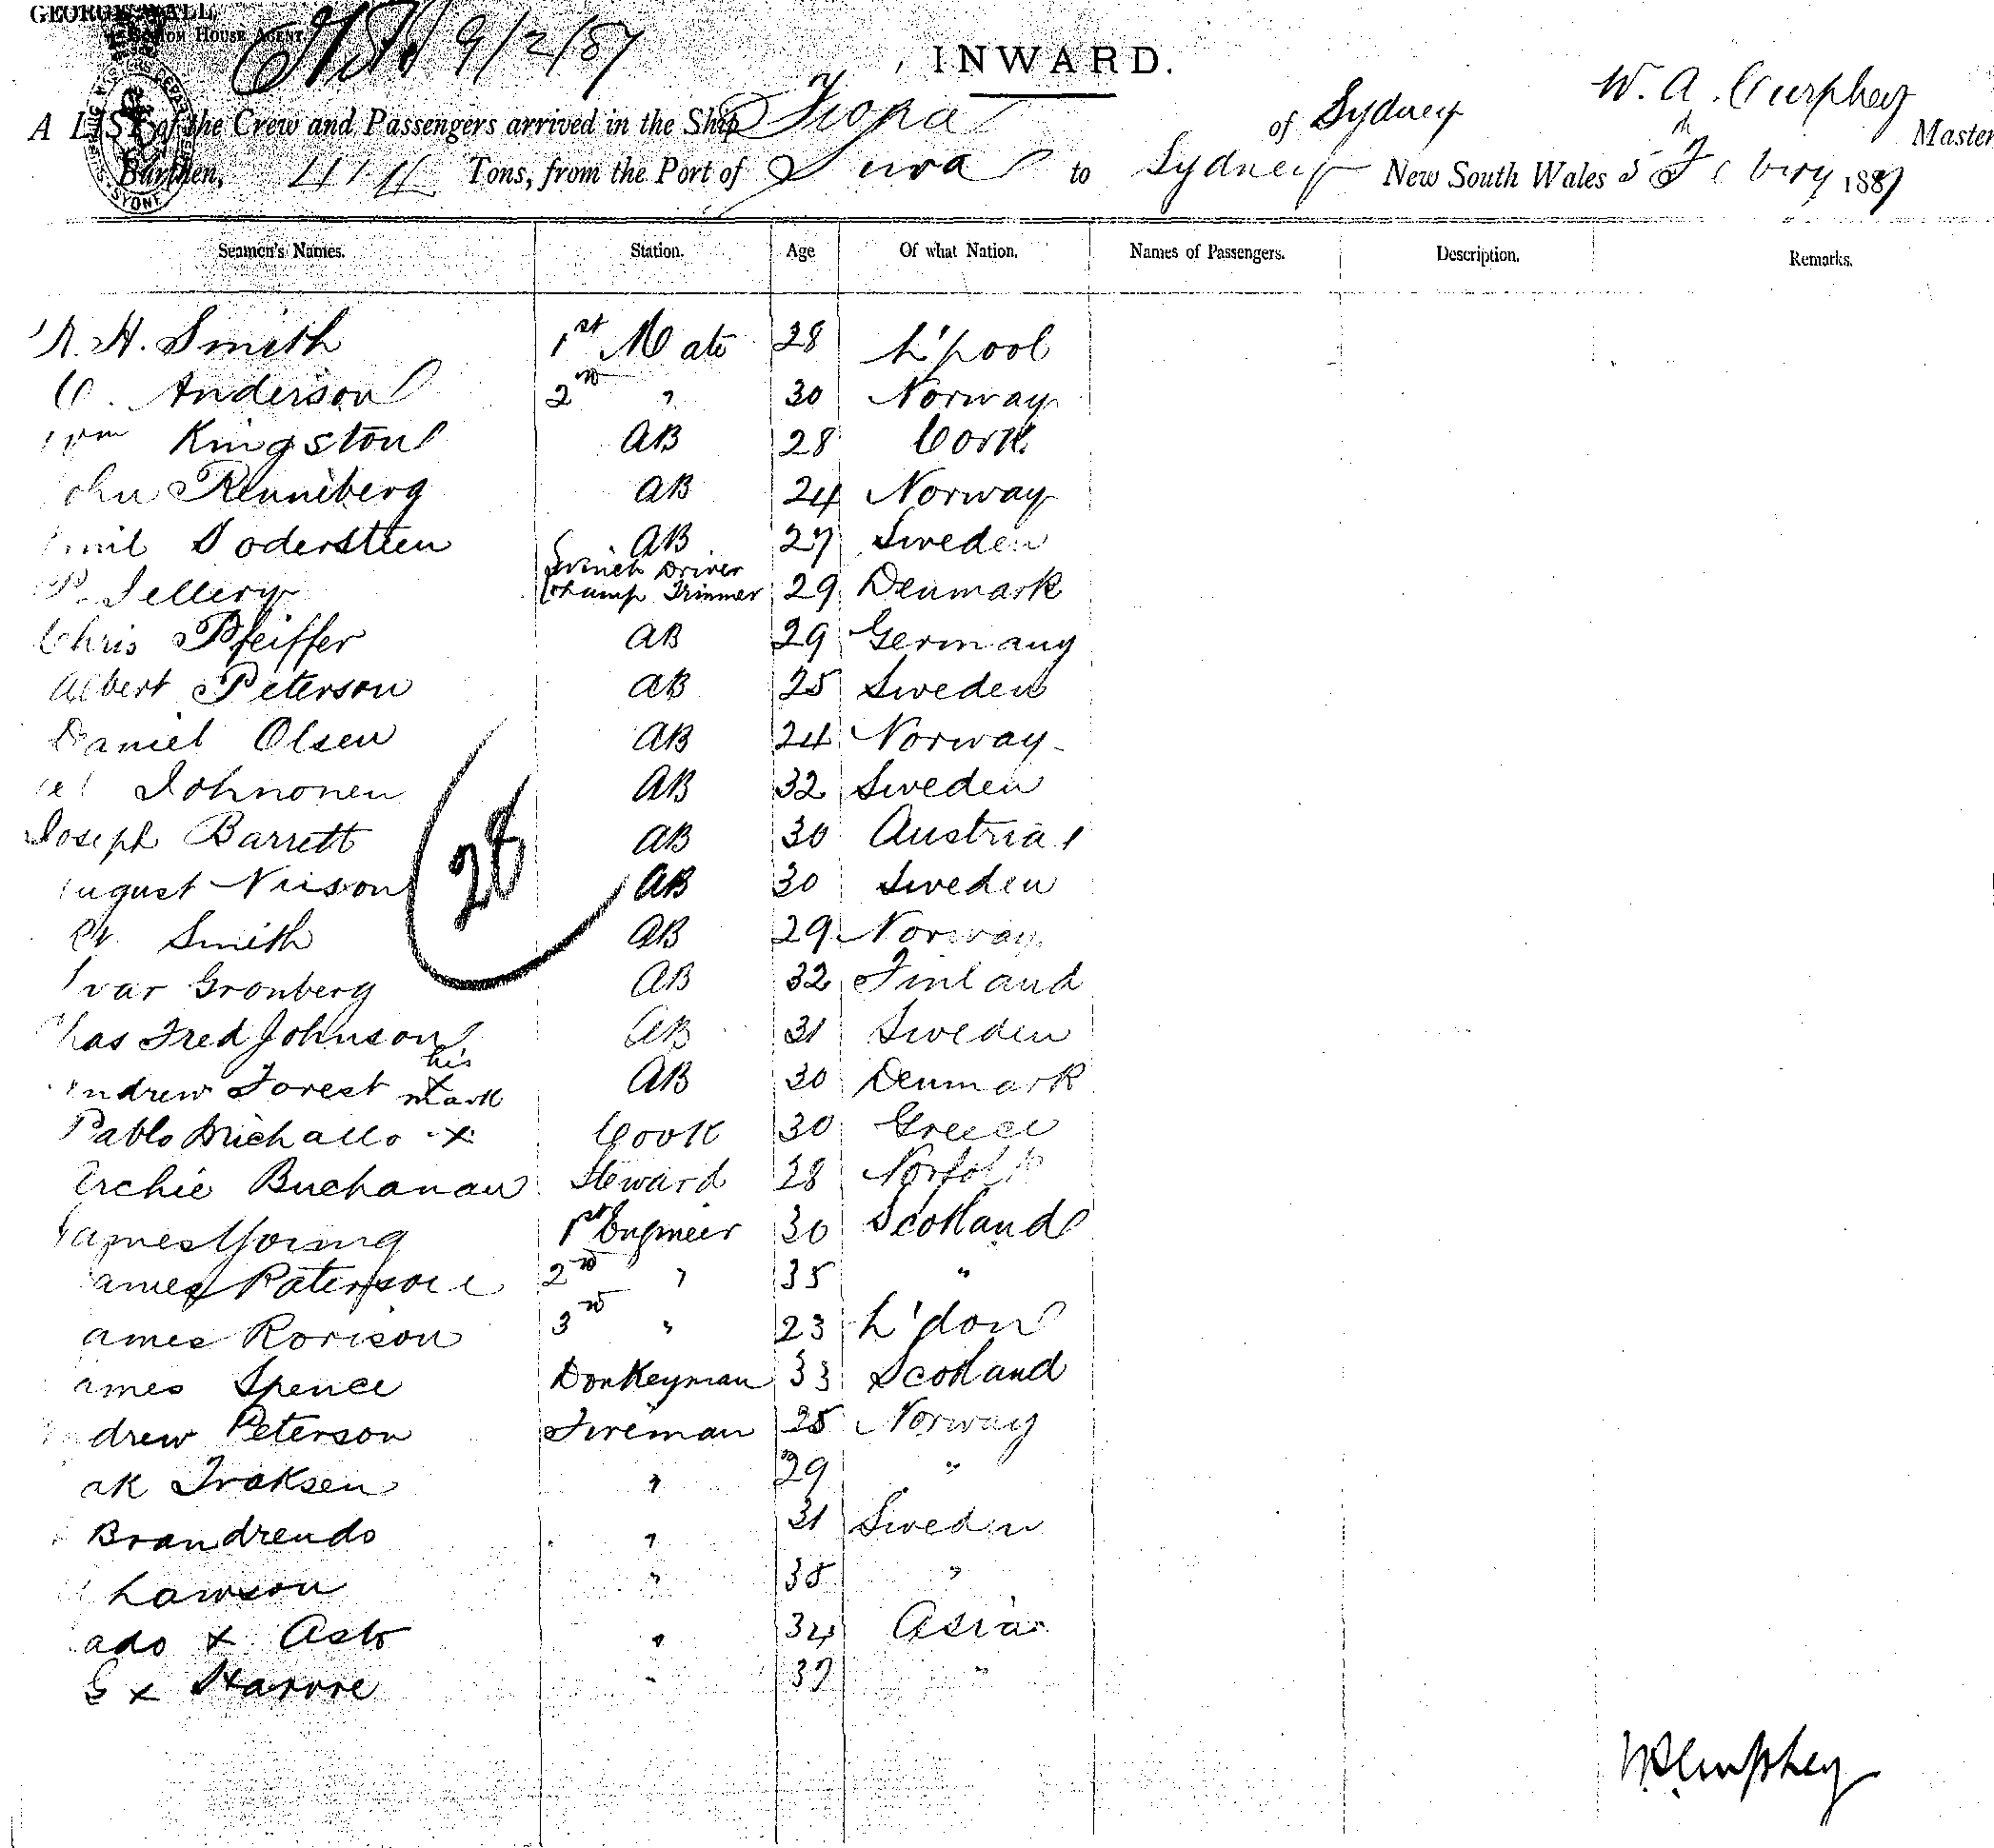 GEORGE WALL,
CUSTOM HOUSE AGENT
9/2/87
INWARD.
A LIST of the Crew and Passengers arrived in the Ship Fiona of Sydney W. A. Curphey Master
Burthen, Tons, from the Port of Suva to Sydney New South Wales 5th Febry 1887
Seamen's Names. Station. Age Of what Nation. Names of Passengers. Description. Remarks.
H. Smith 1st Mate 28 L'pool
Anderson 2nd " 30 Norway
Wm Kingston AB 28 Cork
John Renneberg AB 24 Norway
Emil Soderstein AB 27 Sweden
P. Jellery Winch Driver Lamp Trimmer 29 Denmark
Chris Pfeiffer AB 29 Germany
Albert Peterson AB 25 Sweden
Daniel Olsen AB 24 Norway
Johnonen AB 32 Sweden
Joseph Barrett AB 30 Austria
August Nilson AB 30 Sweden
Smith AB 29 Norway
Ivar Gronberg AB 32 Finland
Chas Fred Johnson AB 31 Sweden
Andrew Forest his x mark AB 30 Denmark
Pablo Michallo x Cook 30 Greece
Archie Buchanan Steward 28 Norfolk
James Young 1st Engineer 30 Scotland
James Paterson 2nd " 35 "
James Rorison 3rd " 23 L'don
James Spence Donkeyman 33 Scotland
Andrew Peterson Fireman 25 Norway
Iraksen " 29 "
Brandrends " 31 Sweden
Lawson " 38 "
x Asto " 34 Asia
x Harvre " 37 "
28
WACurphey